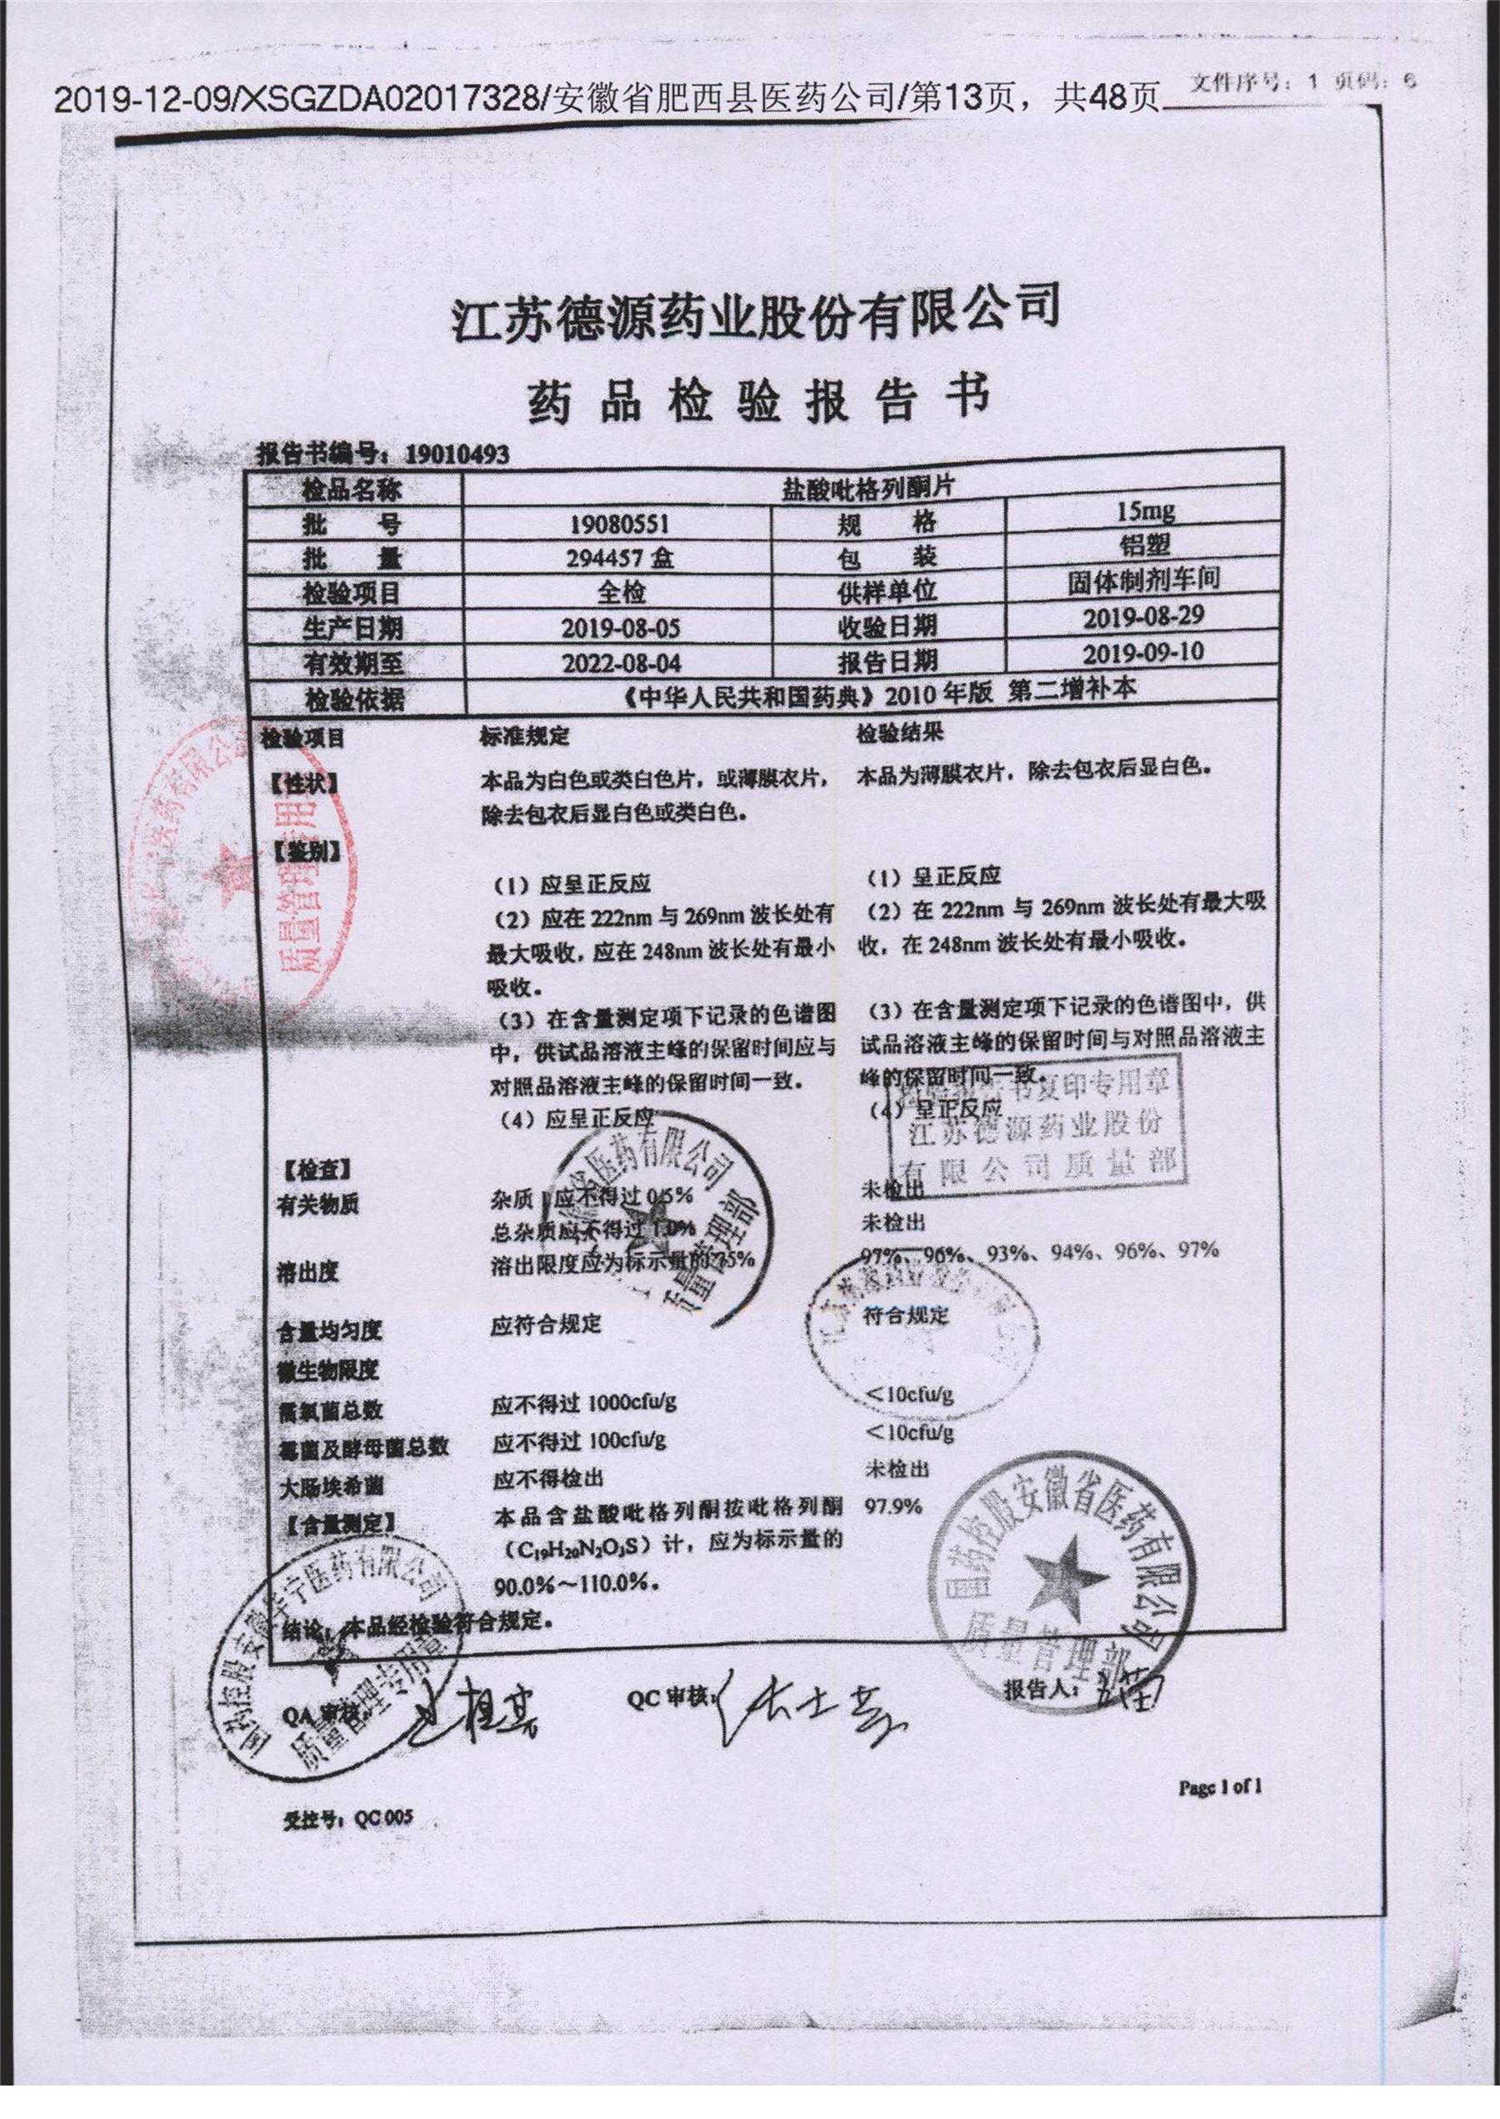 文件序号：1 页码：6
2019-12-09/XSGZDA02017328/安徽省肥西县医药公司/第13页，共48页
江苏德源药业股份有限公司
药品检验报告书
报告书编号：19010493
检品名称 盐酸吡格列酮片
批号 19080551 规格 15mg
批量 294457 盒 包装 铝塑
检验项目 全检 供样单位 固体制剂车间
生产日期 2019-08-05 收验日期 2019-08-29
有效期至 2022-08-04 报告日期 2019-09-10
检验依据 《中华人民共和国药典》2010 年版 第二增补本
检验项目 标准规定 检验结果
【性状】 本品为白色或类白色片，或薄膜衣片， 本品为薄膜衣片，除去包衣后显白色。
除去包衣后显白色或类白色。
【鉴别】
（1）应呈正反应 （1）呈正反应
（2）应在 222nm 与 269nm 波长处有 （2）在 222nm 与 269nm 波长处有最大吸
最大吸收，应在 248nm 波长处有最小 收，在 248nm 波长处有最小吸收。
吸收。
（3）在含量测定项下记录的色谱图 （3）在含量测定项下记录的色谱图中，供
中，供试品溶液主峰的保留时间应与 试品溶液主峰的保留时间与对照品溶液主
对照品溶液主峰的保留时间一致。 峰的保留时间一致。
（4）应呈正反应 （4）呈正反应
书复印专用章
江苏德源药业股份
有限公司质量部
【检查】
有关物质 杂质 I 应不得过 0.5% 未检出
总杂质应不得过 1.0% 未检出
溶出度 溶出限度应为标示量的 75% 97%、96%、93%、94%、96%、97%
含量均匀度 应符合规定 符合规定
微生物限度
需氧菌总数 应不得过 1000cfu/g ＜10cfu/g
霉菌及酵母菌总数 应不得过 100cfu/g ＜10cfu/g
大肠埃希菌 应不得检出 未检出
【含量测定】 本品含盐酸吡格列酮按吡格列酮 97.9%
（C₁₉H₂₀N₂O₃S）计，应为标示量的
90.0%～110.0%。
结论：本品经检验符合规定。
QA 审核： QC 审核： 报告人：
国药控股安徽省医药有限公司
质量管理部
医药有限公司
质量管理专用
受控号：QC 005
Page 1 of 1